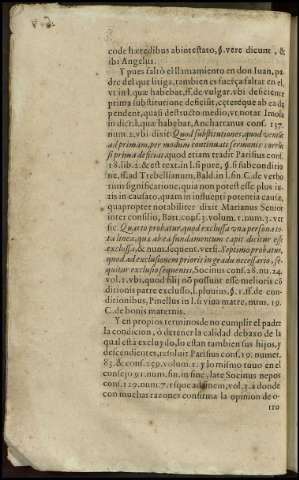 code hæredibus abintestato, §. vero dicunt, &
ibi Angelus.
Y pues faltò el llamamiento en don Iuan, pa-
dre del que litiga, tambien es fuerça faltar en el,
vt in l. quæ habebat, ff. de vulgar. vbi deficiente
prima substitutione deficiũt, cęteręque ab ea de
pendent, quasi destructo medio, vt notat Imola
in dict. l. quæ habebat, Ancharranus conf. 137.
num. 2. vbi dixit: Quod substitutiones, quod
ad primam, per modum continuati sermonis
si prima deficiat, quod etiam tradit Parisius conf.
18. lib. 2. & est text. in l. si pure, §. si sub conditio
ne, ff. ad Trebellianum, Bald. in l. fin. C. de verbo
rum significatione, quia non potest esse plus iu-
ris in causato, quam in influenti potentia causæ,
quapropter notabiliter dixit Marianus
inter consilia, Bart. conf. 3. volum. 1. num. 3. ver
sic. Quarto probatur, quod exclusa vna persona to
ta linea, quæ ab ea fundamentum capit dicitur esse
exclussa, & num. sequent. versi. Septimo probatur,
quod ad exclusionem prioris in gradu necessario, se-
quitur exclusio sequentis, Socinus conf. 28. nu. 24.
vol. 1. vbi, quod filij nõ possunt esse melioris cõ
ditionis patre excluso, l. plutun, §. 1. ff. de con-
ditionibus, Pinellus in l. 1. num. 19.
C. de bonis maternis.
Y en propios terminos de no cumplir el padre
la condicion, ò detener la calidad debaxo de la
qual està excluydo, lo estan tambien sus hijos, y
descendientes, resoluit Parisius conf. 19. numer.
83. & conf. 259. volum. 1. y lo mismo tuuo en el
consejo 91. num. fin. in fine, late Socinus nepos
conf. 129. num. 7. vsque ad finem, vol. 2. a donde
con muchas razones confirma la opinion de o-
tro